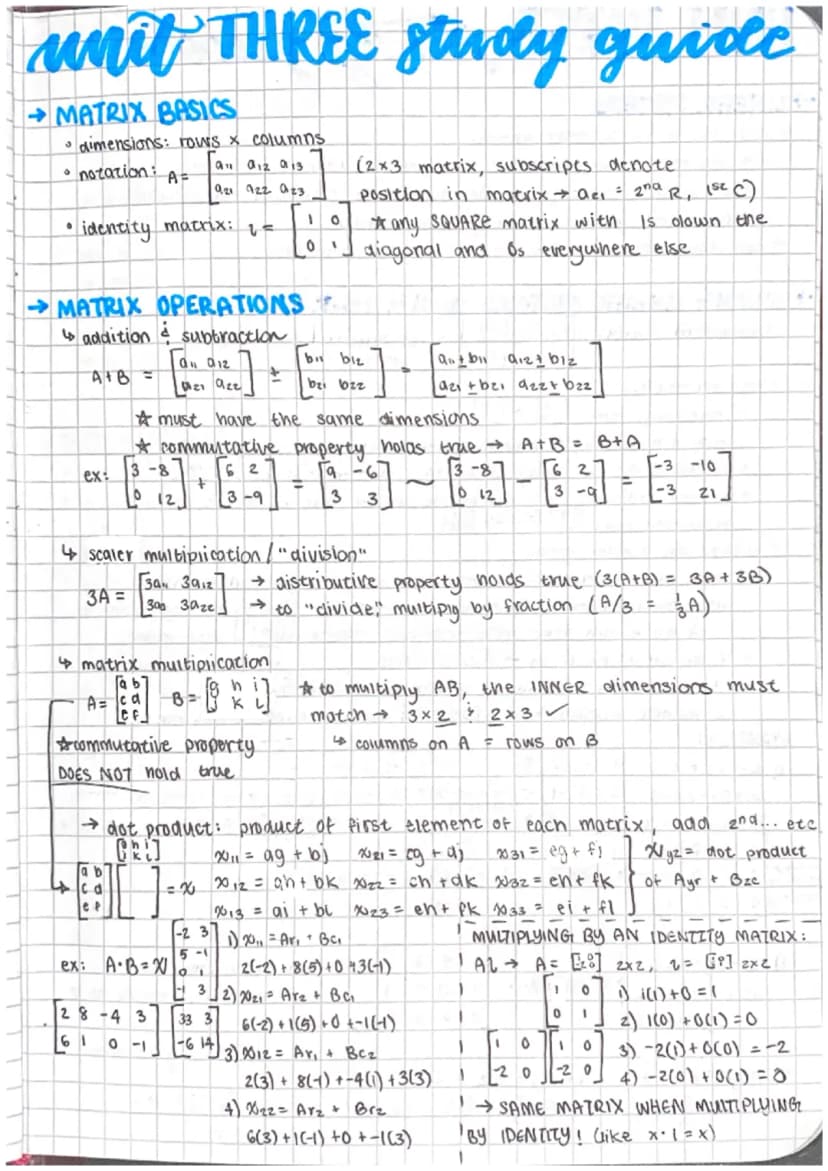 unit THREE study guide
→ MATRIX BASICS
• dimensions: rows x columns
• notation: A = [a11 a12 a13
a21 a22 a23] (2x3 matrix, subscripts denote
position in matrix → a21 = 2nd R, 1st C)
• identity matrix: I = [1 0
0 1] ☆ any SQUARE matrix with 1s down the
diagonal and 0s everywhere else
→ MATRIX OPERATIONS
↳ addition & subtraction
A+B = [a11 a12
a21 a22] ± [b11 b12
b21 b22] = [a11±b11 a12±b12
a21±b21 a22±b22]
☆ must have the same dimensions
☆ commutative property holds true → A+B = B+A
ex: [3 -8
0 12] + [6 2
3 -9] = [9 -6
3 3] ~ [3 -8
0 12] - [6 2
3 -9] = [-3 -10
-3 21]
↳ scaler multiplication / "division"
3A = [3a11 3a12
3a0 3a22] → distributive property holds true (3(A+B) = 3A + 3B)
→ to "divide," multiply by fraction (A/3 = 1/3 A)
↳ matrix multiplication
A = [a b
c d
e f] B = [g h i
j k l] ☆ to multiply AB, the INNER dimensions must
match → 3x2 & 2x3 ✓
↳ columns on A = rows on B
☆ commutative property
DOES NOT hold true
→ dot product: product of first element of each matrix, add 2nd... etc
[g h i
j k l]
[a b
c d
e f] [ ] = x
x11 = ag + bj x21 = cg + dj x31 = eg + fj
x12 = ah + bk x22 = ch + dk x32 = eh + fk
x13 = ai + bl x23 = eh + fk x33 = ei + fl
xyz = dot product
of Ayr + Bzc
ex: A·B = x
[-2 3
5 -1
0 1
-1 3]
[2 8 -4 3
6 1 0 -1] [33 3
-6 14]
1) x11 = Ar1 + Bc1
2(-2) + 8(5) + 0 + 3(-1)
2) x21 = Ar2 + Bc1
6(-2) + 1(5) + 0 + -1(-1)
3) x12 = Ar1 + Bc2
2(3) + 8(-1) + -4(1) + 3(3)
4) x22 = Ar2 + Br2
6(3) + 1(-1) + 0 + -1(3)
MULTIPLYING BY AN IDENTITY MATRIX:
AI → A = [1 0
-2 0] 2x2, I = [1 0
0 1] 2x2
[1 0
0 1]
[1 0
-2 0] [1 0
-2 0]
1) 1(1) + 0 = 1
2) 1(0) + 0(1) = 0
3) -2(1) + 0(0) = -2
4) -2(0) + 0(1) = 0
→ SAME MATRIX WHEN MULTIPLYING
BY IDENTITY! (like x·1 = x)